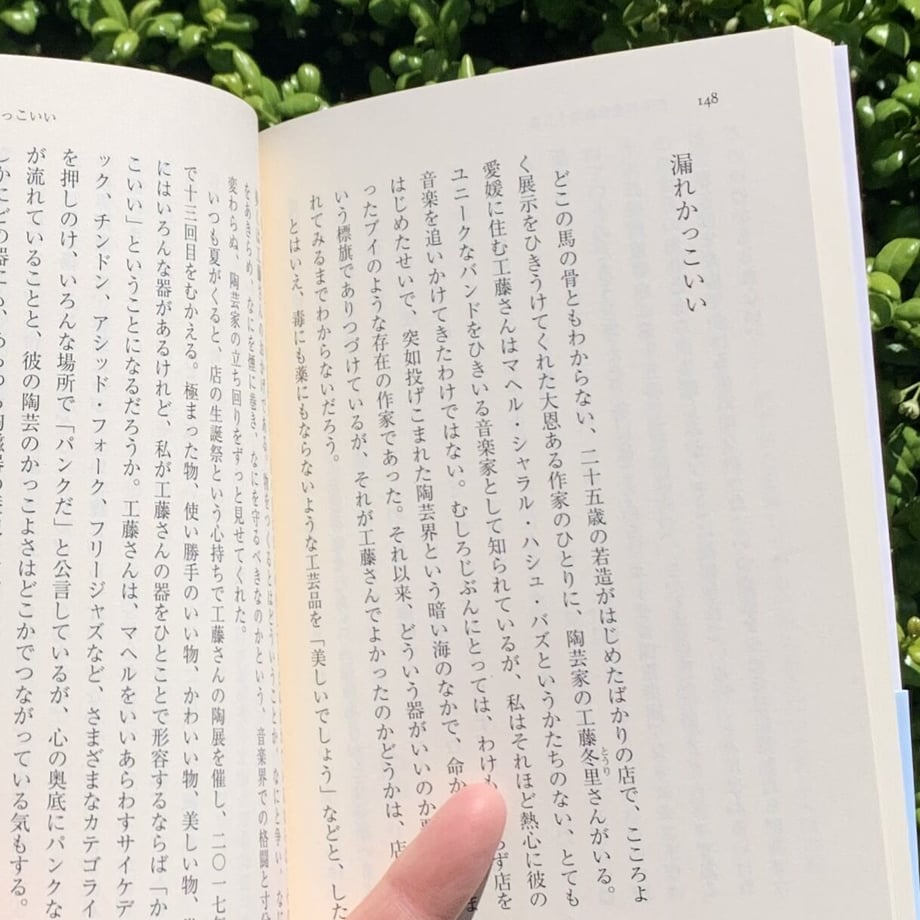 148
漏れかっこいい
どこの馬の骨ともわからない、二十五歳の若造がはじめたばかりの店で、こころよ
く展示をひきうけてくれた大恩ある作家のひとりに、陶芸家の工藤冬里さんがいる。
とうり
愛媛に住む工藤さんはマヘル・シャラル・ハシュ・バズというかたちのない、とても
ユニークなバンドをひきいる音楽家として知られているが、私はそれほど熱心に彼の
音楽を追いかけてきたわけではない。むしろじぶんにとっては、わけも らず店を
はじめたせいで、突如投げこまれた陶芸界という暗い海のなかで、命か
ったブイのような存在の作家であった。それ以来、どういう器がいいのか
いう標旗でありつづけているが、それが工藤さんでよかったのかどうかは、店
れてみるまでわからないだろう。
とはいえ、毒にも薬にもならないような工芸品を「美しいでしょう」などと、した
っこいい
をあきらめ、なにを煙に巻き、なにを守るべきなのかという、音楽界での格闘と寸分
変わらぬ、陶芸家の立ち回りをずっと見せてくれた。
いつも夏がくると、店の生誕祭という心持ちで工藤さんの陶展を催し、二〇一七年
で十三回目をむかえる。極まった物、使い勝手のいい物、かわいい物、美しい物、
にはいろんな器があるけれど、私が工藤さんの器をひとことで形容するならば「か
こいい」ということになるだろうか。工藤さんは、マヘルをいいあらわすサイケデ
ック、チンドン、アシッド・フォーク、フリージャズなど、さまざまなカテゴライ
を押しのけ、いろんな場所で「パンクだ」と公言しているが、心の奥底にパンクな
が流れていることと、彼の陶芸のかっこよさはどこかでつながっている気もする。